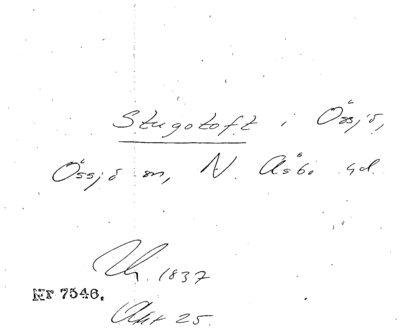 Stugotoft i Össjö,
Össjö sn, N. Åsbo hd.
1837
Nr 7546.
Akt 25.